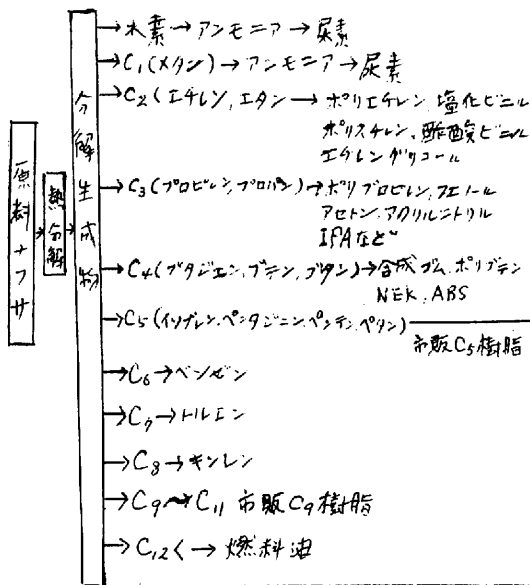 原料ナフサ
熱分解
分解生成物
水素→アンモニア→尿素
C₁(メタン)→アンモニア→尿素
C₂(エチレン,エタン→ポリエチレン,塩化ビニル
ポリスチレン,酢酸ビニル
エチレングリコール
C₃(プロピレン,プロパン)→ポリプロピレン,フェノール
アセトン,アクリルニトリル
IPAなど
C₄(ブタジエン,ブテン,ブタン)→合成ゴム,ポリブテン
NEK,ABS
C₅(イソプレン,ペンタジエン,ペンテン,ペタン)
市販C₅樹脂
C₆→ベンゼン
C₇→トルエン
C₈→キシレン
C₉〜C₁₁ 市販C₉樹脂
C₁₂<→燃料油